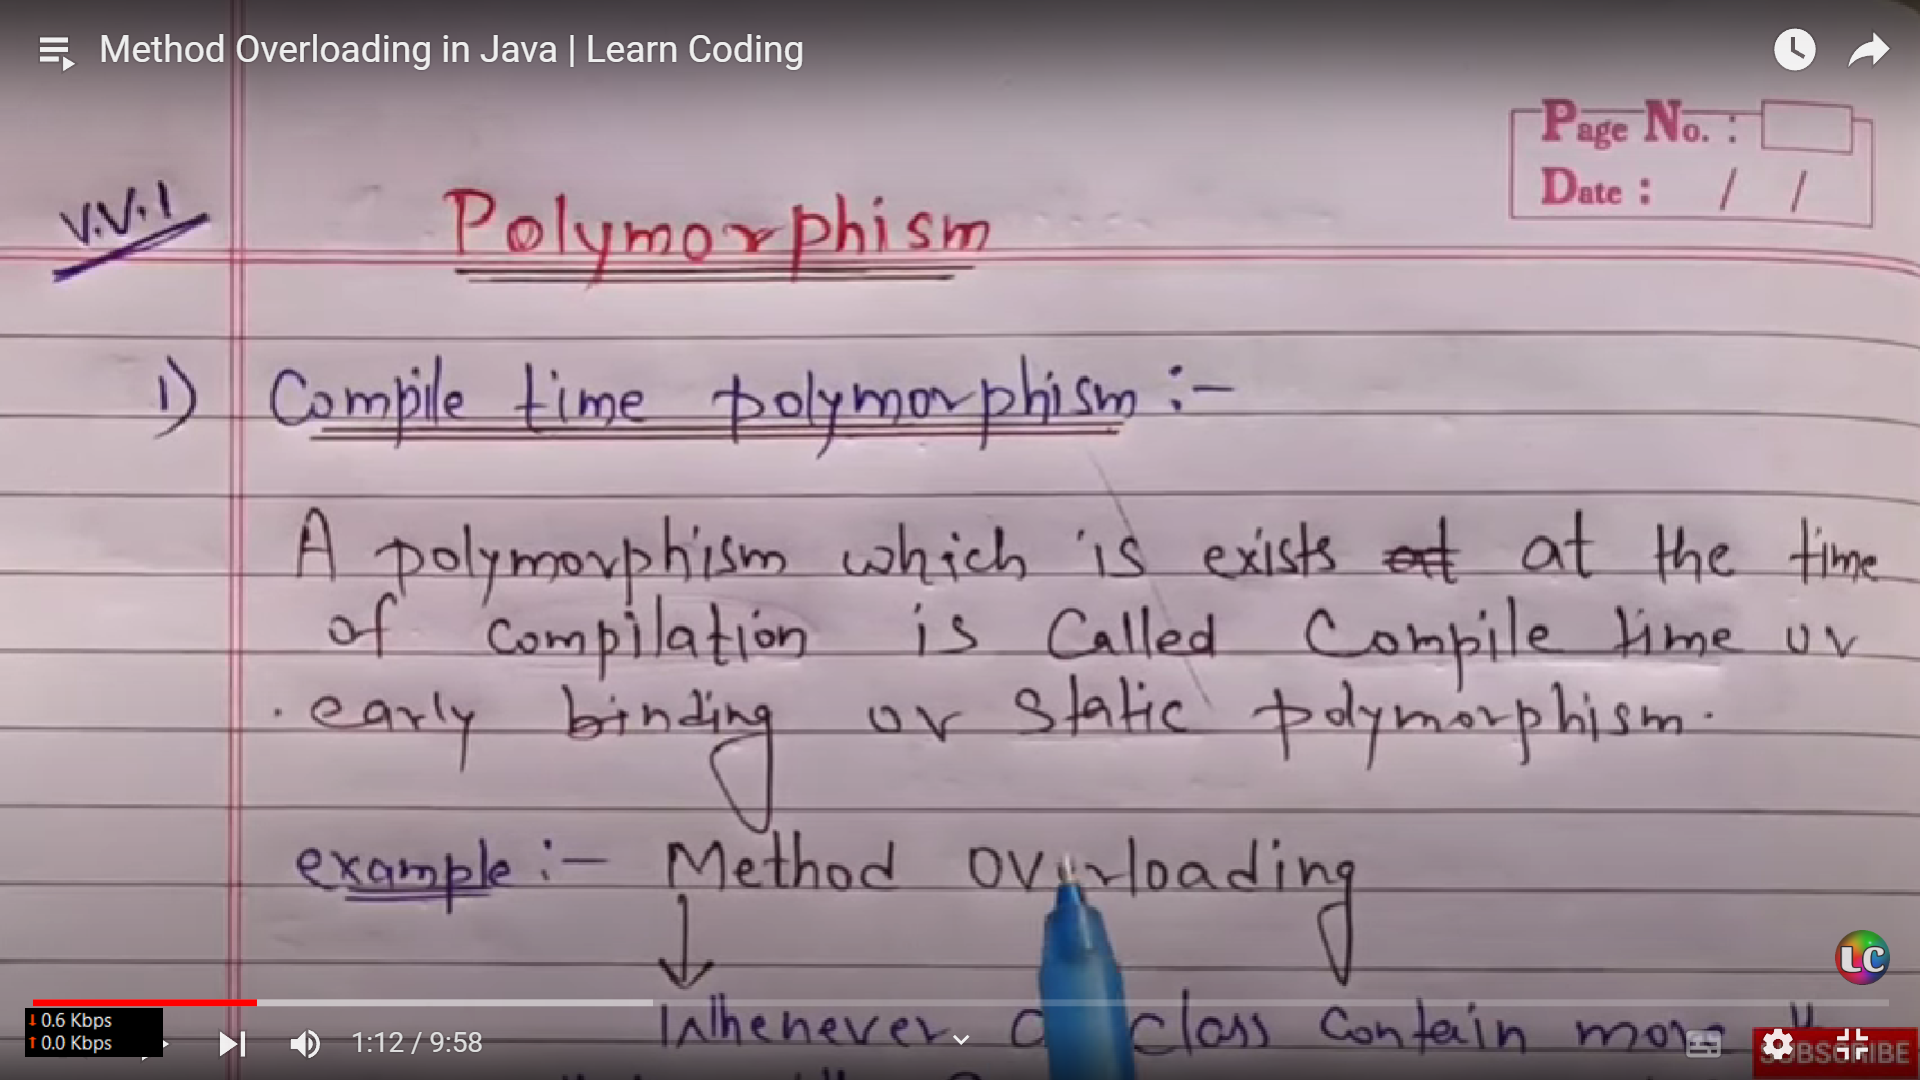 Method Overloading in Java | Learn Coding
Page No. :
Date : / /
V.V.I
Polymorphism
1) Compile time polymorphism :-
A polymorphism which is exists at the time
of compilation is Called Compile time or
early binding or Static polymorphism.
example :- Method Overloading
Whenever a class Contain more
LC
↓ 0.6 Kbps
↑ 0.0 Kbps
1:12 / 9:58
SUBSCRIBE